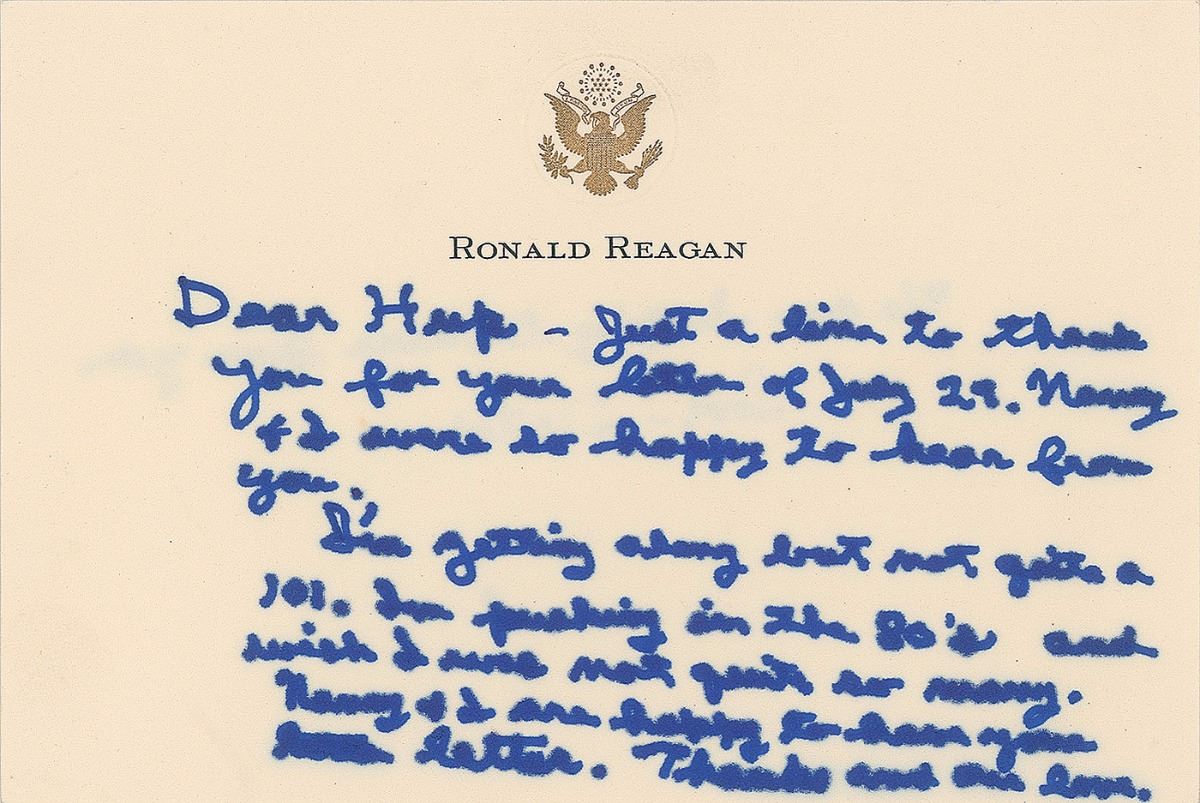 RONALD REAGAN
Dear Hup – Just a line to thank
you for your letter of July 29. Nancy
& I were so happy to hear from
you.
I'm getting along but not quite a
101. Im pushing in the 80's and
wish I was not quite so many.
Nancy & I are happy to have your
letter. Thanks and our love.